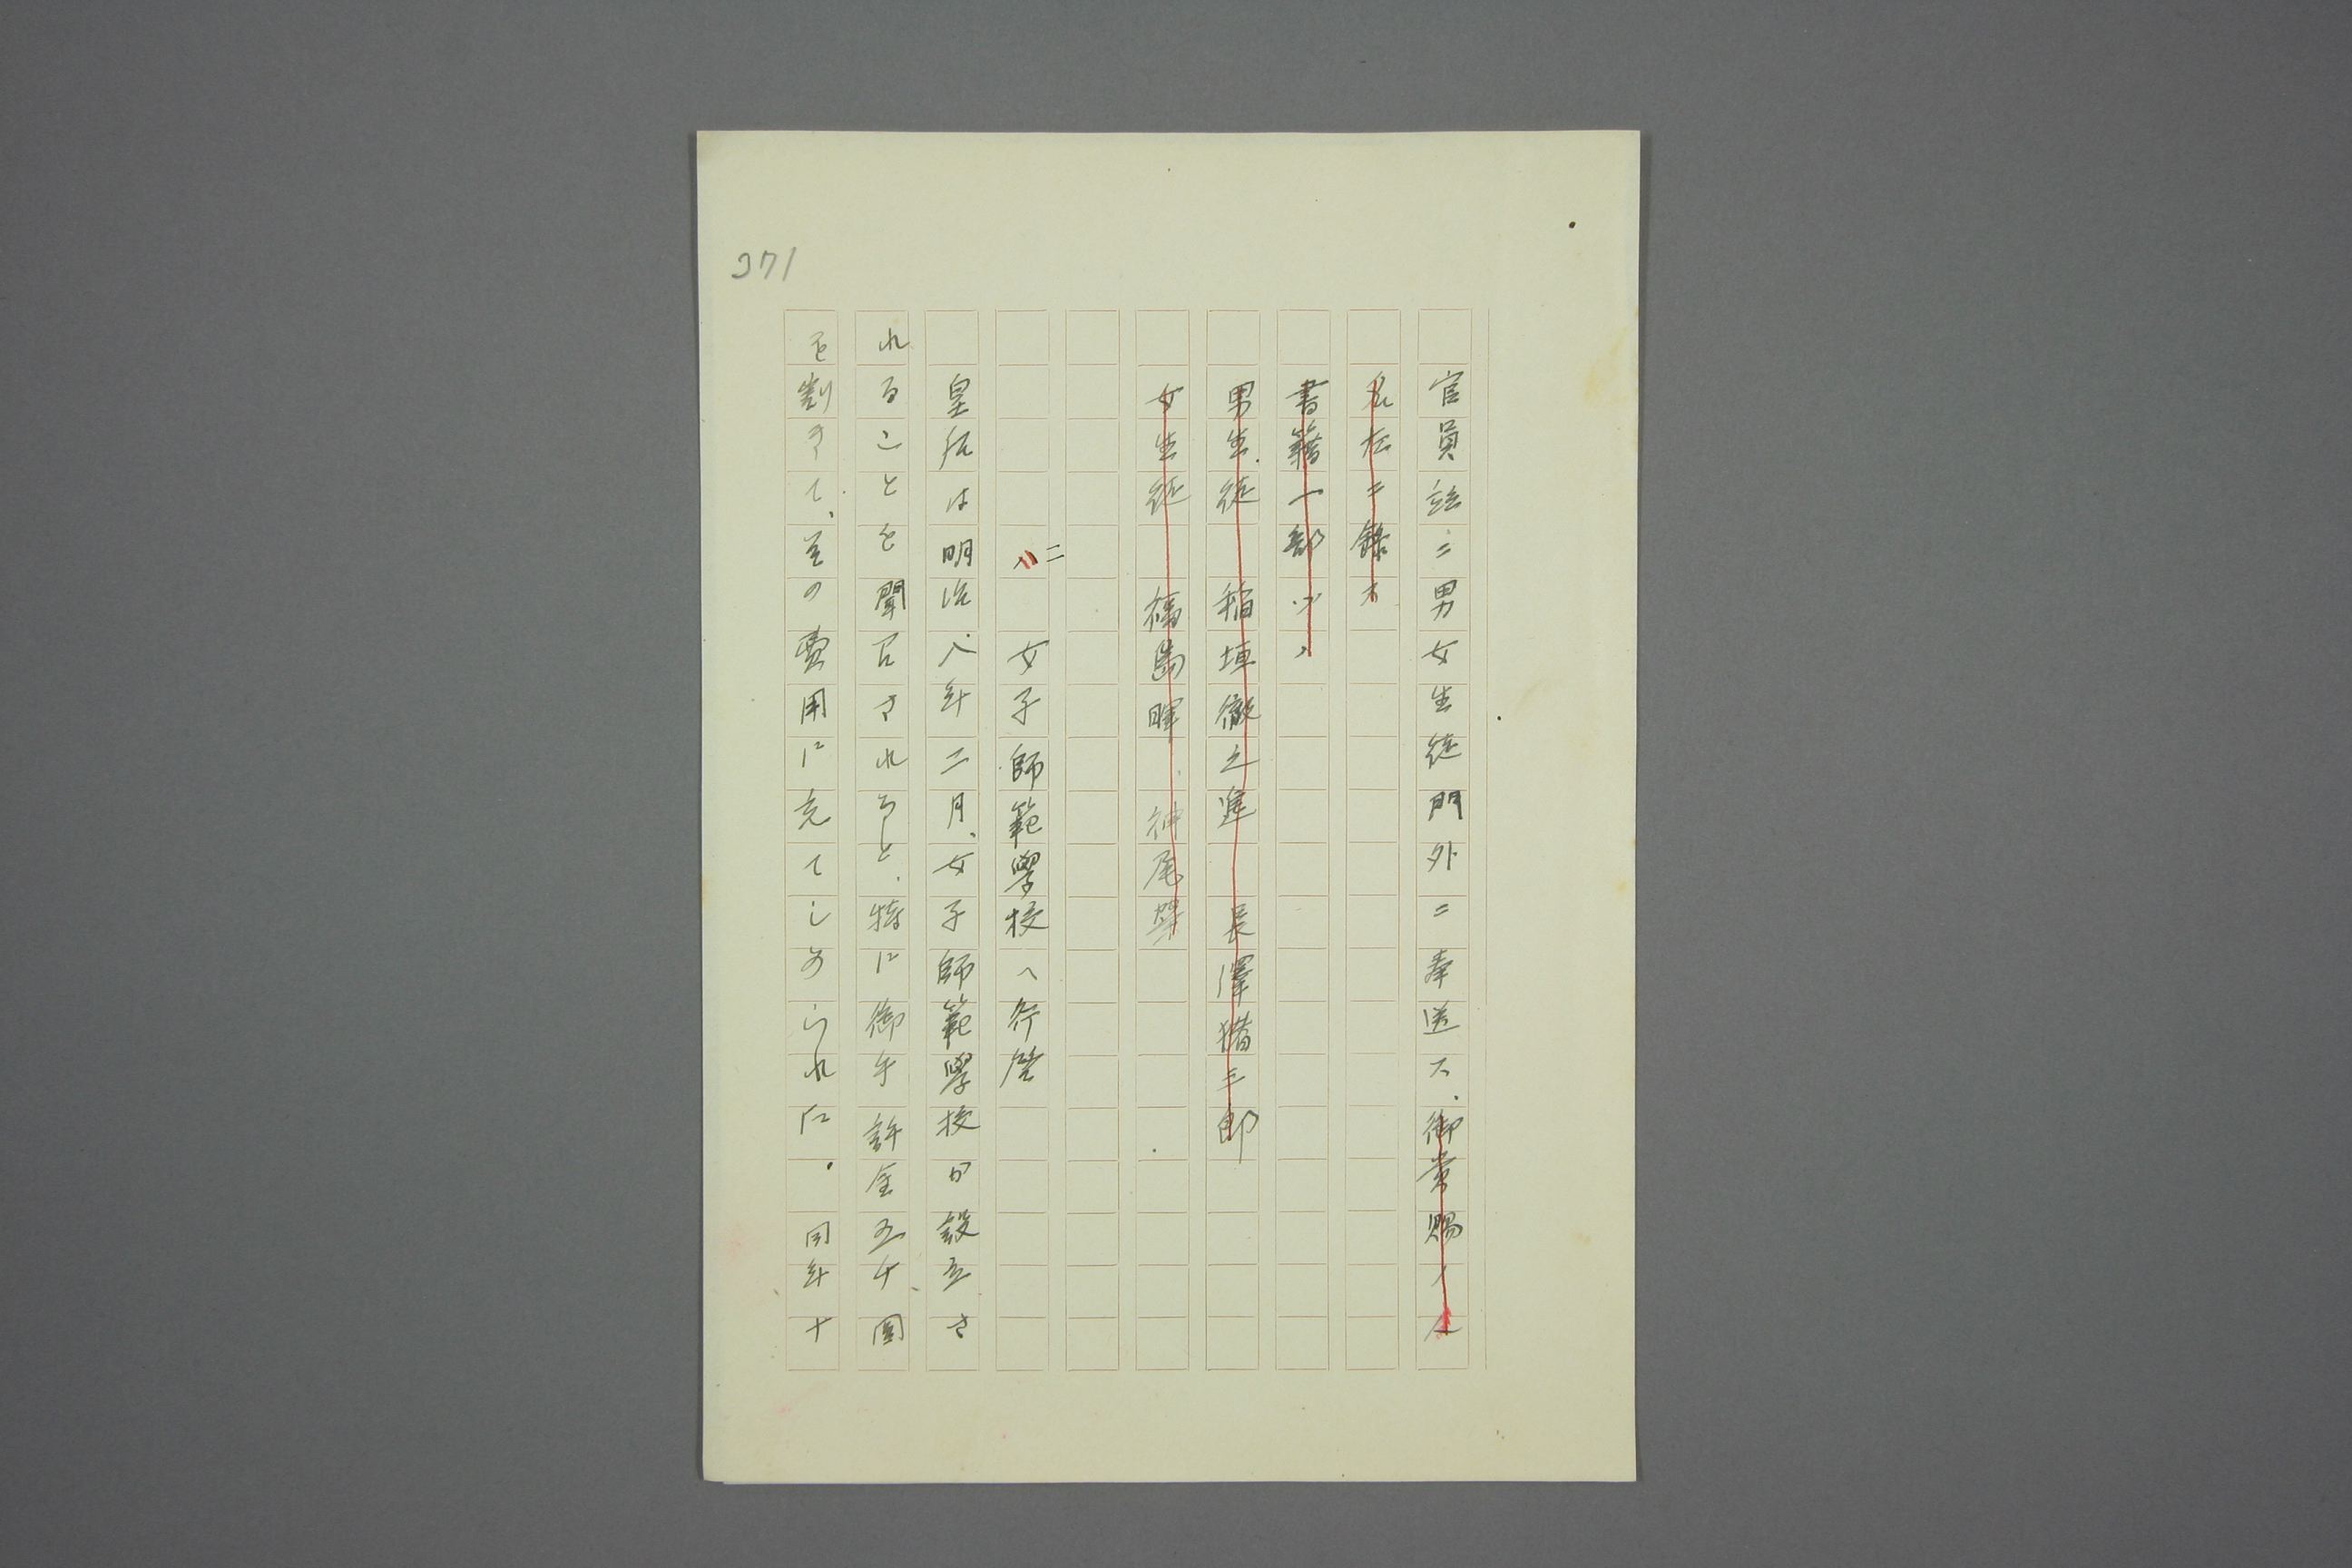 371
官員竝ニ男女生徒門外ニ奉送ス、御賞賜ノ人
名左ニ錄ス
書籍一部ヅヽ
男生徒 稲垣徹之進 長澤猪三郎
女生徒 福島暉 神尾擧
二 女子師範學校へ行啓
皇后は明治八年二月、女子師範學校が設立さ
れることを聞召されると、特に御手許金五千圓
を割きて、その費用に充てしめられた。同年十